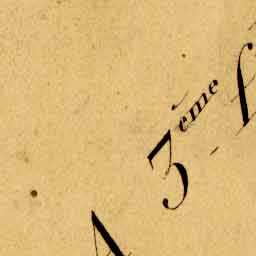 A 3ème